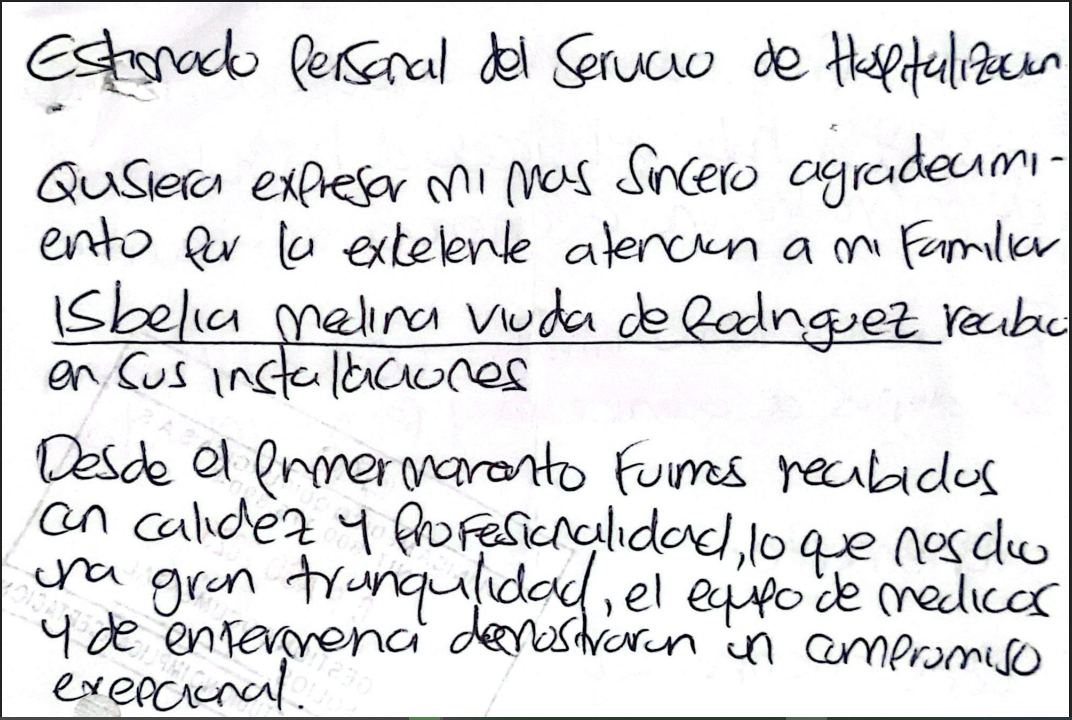 Estimado Personal del Servicio de Hospitalización
Quisiera expresar mi mas sincero agradecimi-
ento por la excelente atencion a mi Familiar
Isbelia medina viuda de Rodriguez recibio
en sus instalaciones
Desde el primer momento Fuimos recibidos
con calidez y profesionalidad, lo que nos dio
una gran tranquilidad, el equipo de medicos
y de enfermeria demostraron un compromiso
exepcional.